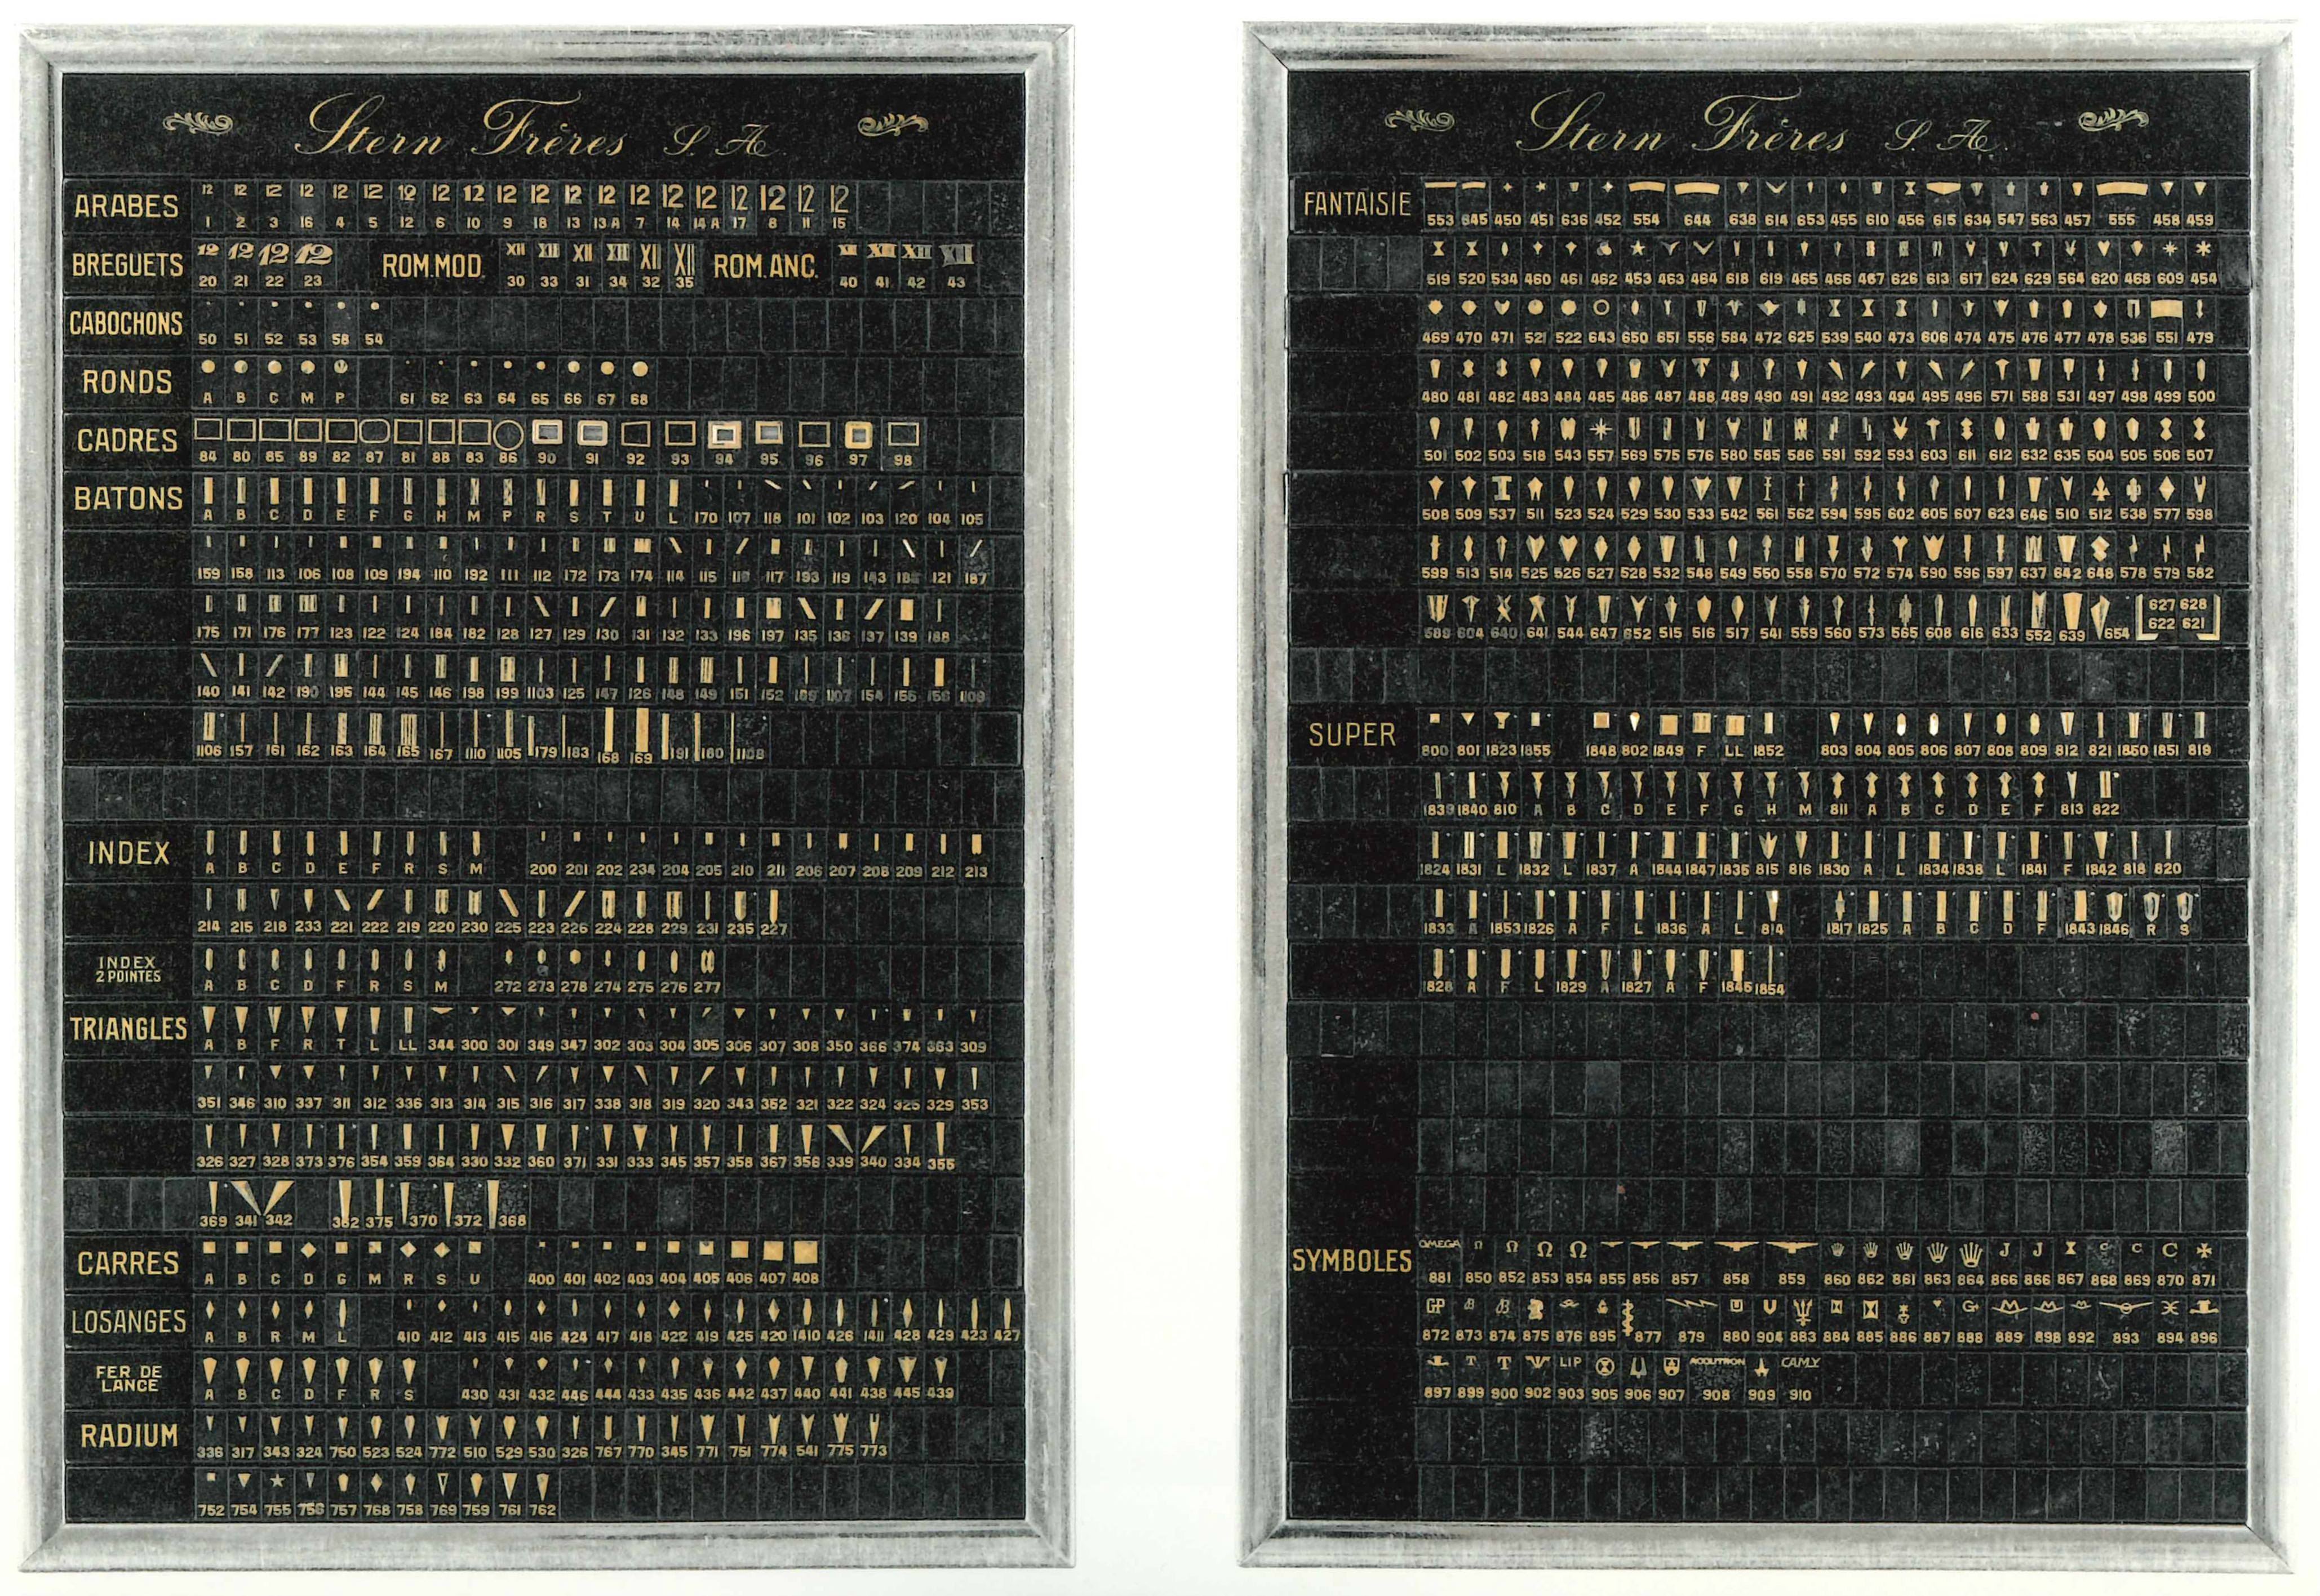 Stern Frères S. A.
ARABES 12 12 12 12 12 12 12 12 12 12 12 12 12 12 12 12 12 12 12 12
1 2 3 16 4 5 12 6 10 9 18 13 13A 7 14 14A 17 8 11 15
BREGUETS 12 12 12 12 ROM.MOD. XII XII XII XII XII XII ROM.ANC. XII XII XII XII
20 21 22 23 30 33 31 34 32 35 40 41 42 43
CABOCHONS
50 51 52 53 58 54
RONDS
A B C M P 61 62 63 64 65 66 67 68
CADRES
84 80 85 89 82 87 81 88 83 86 90 91 92 93 94 95 96 97 98
BATONS
A B C D E F G H M P R S T U L 170 107 118 101 102 103 120 104 105
159 158 113 106 108 109 194 110 192 111 112 172 173 174 114 115 117 193 119 143 121 187
175 171 176 177 123 122 124 184 182 128 127 129 130 131 132 133 196 197 135 136 137 139 188
140 141 142 190 195 144 145 146 198 199 1103 125 147 126 148 149 151 152 1107 154 156
1106 157 161 162 163 164 165 167 1110 1105 179 183 168 169 191 180 1108
INDEX
A B C D E F R S M 200 201 202 234 204 205 210 211 206 207 208 209 212 213
214 215 218 233 221 222 219 220 230 225 223 226 224 228 229 231 235 227
INDEX
2 POINTES
A B C D F R S M 272 273 278 274 275 276 277
TRIANGLES
A B F R T L LL 344 300 301 349 347 302 303 304 305 306 307 308 350 366 374 363 309
351 346 310 337 311 312 336 313 314 315 316 317 338 318 319 320 343 352 321 322 324 325 329 353
326 327 328 373 376 354 359 364 330 332 360 371 331 333 345 357 358 367 356 339 340 334 355
369 341 342 362 375 370 372 368
CARRES
A B C D G M R S U 400 401 402 403 404 405 406 407 408
LOSANGES
A B R M L 410 412 413 415 416 424 417 418 422 419 425 420 1410 426 1411 428 429 423 427
FER DE
LANCE
A B C D F R S 430 431 432 446 444 433 435 436 442 437 440 441 438 445 439
RADIUM
336 317 343 324 750 523 524 772 510 529 530 326 767 770 345 771 751 774 541 775 773
752 754 755 756 757 768 758 769 759 761 762
Stern Frères S. A.
FANTAISIE
553 645 450 451 636 452 554 644 638 614 653 455 610 456 615 634 547 563 457 555 458 459
519 520 534 460 461 462 453 463 464 618 619 465 466 467 626 613 617 624 629 564 620 468 609 454
469 470 471 521 522 643 650 651 556 584 472 625 539 540 473 606 474 475 476 477 478 536 551 479
480 481 482 483 484 485 486 487 488 489 490 491 492 493 494 495 496 571 588 531 497 498 499 500
501 502 503 518 543 557 569 575 576 580 585 586 591 592 593 603 611 612 632 635 504 505 506 507
508 509 537 511 523 524 529 530 533 542 561 562 594 595 602 605 607 623 646 510 512 538 577 598
599 513 514 525 526 527 528 532 548 549 550 558 570 572 574 590 596 597 637 642 648 578 579 582
589 604 640 641 544 647 652 515 516 517 541 559 560 573 565 608 616 633 552 639 654 627 628
622 621
SUPER
800 801 1823 1855 1848 802 1849 F LL 1852 803 804 805 806 807 808 809 812 821 1850 1851 819
1839 1840 810 A B C D E F G H M 811 A B C D E F 813 822
1824 1831 L 1832 L 1837 A 1844 1847 1835 815 816 1830 A L 1834 1838 L 1841 F 1842 818 820
1833 A 1853 1826 A F L 1836 A L 814 1817 1825 A B C D F 1843 1846 R S
1828 A F L 1829 A 1827 A F 1845 1854
SYMBOLES OMEGA Ω Ω Ω Ω J J C C C
881 850 852 853 854 855 856 857 858 859 860 862 861 863 864 866 866 867 868 869 870 871
GP B B U G+
872 873 874 875 876 895 877 879 880 904 883 884 885 886 887 888 889 898 892 893 894 896
T T LIP ACCUTRON CAMY
897 899 900 902 903 905 906 907 908 909 910